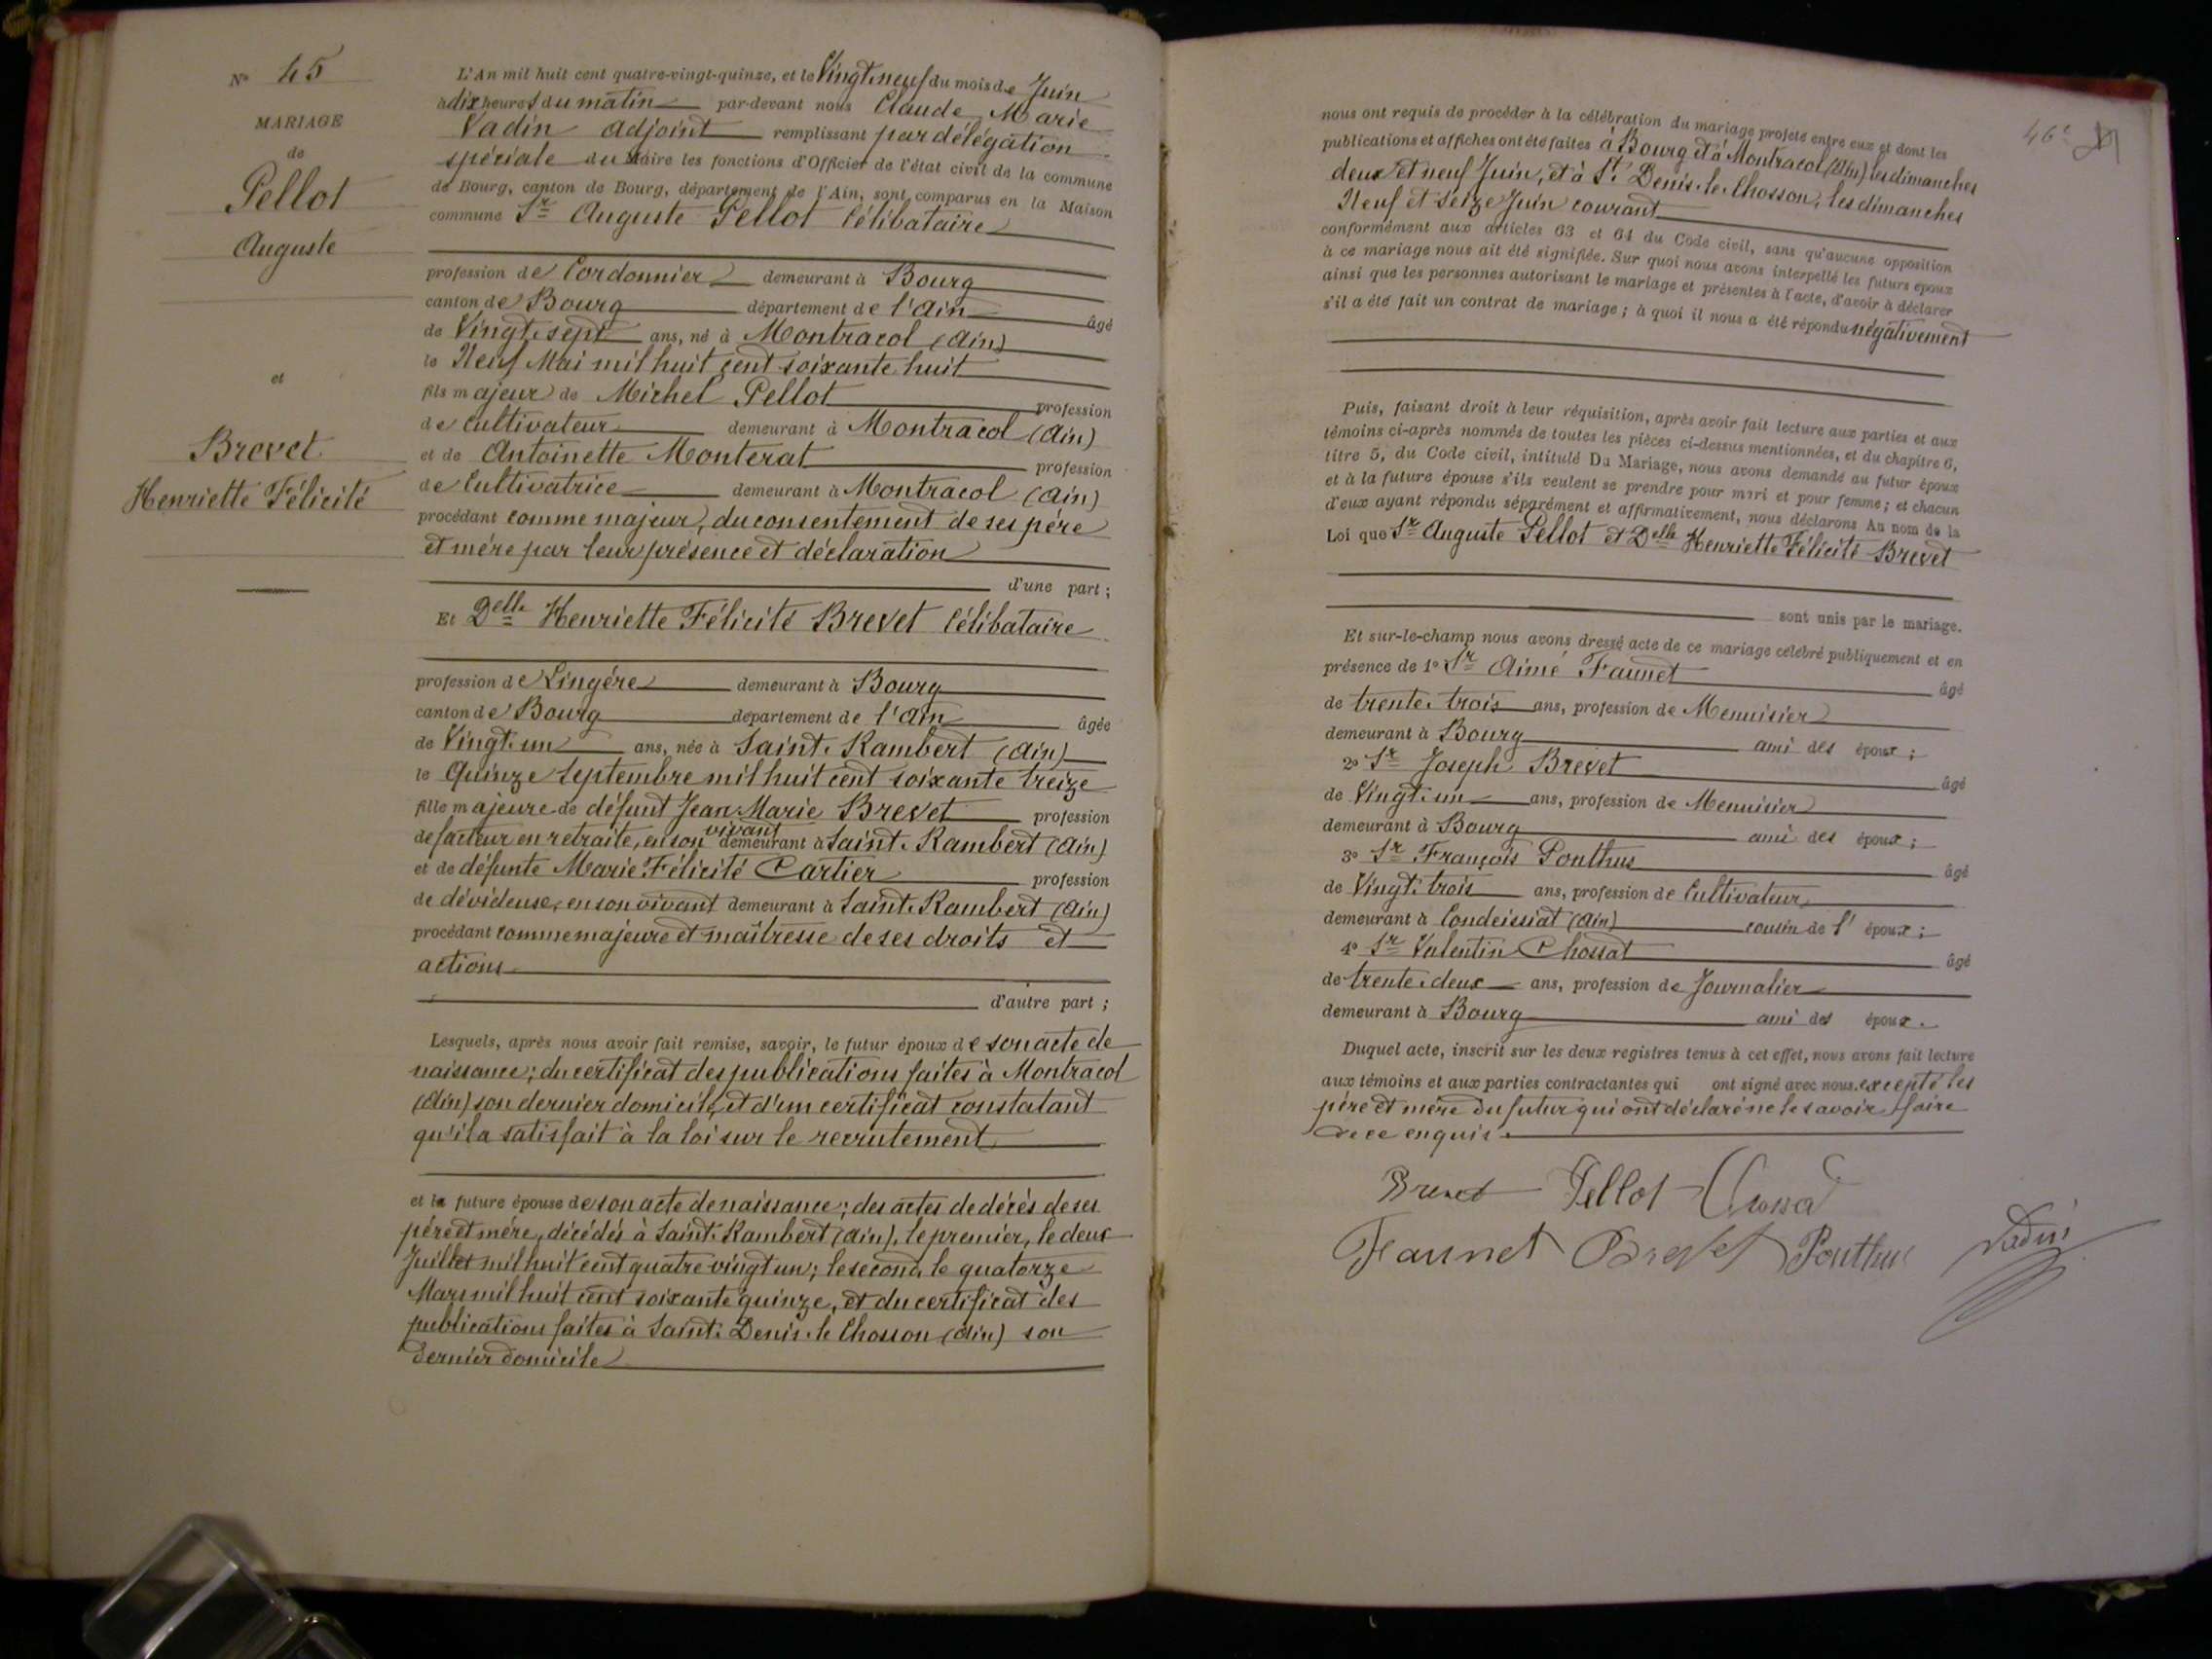 N° 45
MARIAGE
de
Pellot
Auguste
et
Brevet
Henriette Félicité
L'An mil huit cent quatre-vingt-quinze, et le Vingt-neuf du mois de Juin
à dix heures du matin par-devant nous Claude Marie
Vadin adjoint remplissant par délégation
spéciale du Maire les fonctions d'Officier de l'état civil de la commune
de Bourg, canton de Bourg, département de l'Ain, sont comparus en la Maison
commune Sr Auguste Pellot Célibataire
profession de Cordonnier demeurant à Bourg
canton de Bourg département de l'Ain âgé
de Vingt-sept ans, né à Montracol (Ain)
le Neuf Mai mil huit cent soixante huit
fils majeur de Michel Pellot profession
de cultivateur demeurant à Montracol (Ain)
et de Antoinette Monterat profession
de Cultivatrice demeurant à Montracol (Ain)
procédant comme majeur, du consentement de ses père
et mère par leur présence et déclaration
d'une part ;
Et Delle Henriette Félicité Brevet Célibataire
profession de Lingère demeurant à Bourg
canton de Bourg département de l'Ain âgée
de Vingt-un ans, née à Saint-Rambert (Ain)
le Quinze Septembre mil huit cent soixante treize
fille majeure de défunt Jean-Marie Brevet profession
de facteur en retraite, en son vivant demeurant à Saint-Rambert (Ain)
et de défunte Marie Félicité Cartier profession
de dévideuse, en son vivant demeurant à Saint-Rambert (Ain)
procédant comme majeure et maîtresse de ses droits et
actions
d'autre part ;
Lesquels, après nous avoir fait remise, savoir, le futur époux de son acte de
naissance; du certificat des publications faites à Montracol
(Ain) son dernier domicile, et d'un certificat constatant
qu'il a satisfait à la loi sur le recrutement
et la future épouse de son acte de naissance; des actes de décès de ses
père et mère, décédés à Saint-Rambert (Ain), le premier, le deux
Juillet mil huit cent quatre vingt un; le second, le quatorze
Mars mil huit cent soixante quinze, et du certificat des
publications faites à Saint-Denis-le Chosson (Ain) son
dernier domicile
46e
nous ont requis de procéder à la célébration du mariage projeté entre eux et dont les
publications et affiches ont été faites à Bourg et à Montracol (Ain) les dimanches
deux et neuf Juin, et à St Denis-le-Chosson, les dimanches
Neuf et Seize Juin courant
conformément aux articles 63 et 64 du Code civil, sans qu'aucune opposition
à ce mariage nous ait été signifiée. Sur quoi nous avons interpellé les futurs époux
ainsi que les personnes autorisant le mariage et présentes à l'acte, d'avoir à déclarer
s'il a été fait un contrat de mariage ; à quoi il nous a été répondu négativement
Puis, faisant droit à leur réquisition, après avoir fait lecture aux parties et aux
témoins ci-après nommés de toutes les pièces ci-dessus mentionnées, et du chapitre 6,
titre 5, du Code civil, intitulé Du Mariage, nous avons demandé au futur époux
et à la future épouse s'ils veulent se prendre pour mari et pour femme ; et chacun
d'eux ayant répondu séparément et affirmativement, nous déclarons Au nom de la
Loi que Sr Auguste Pellot et Delle Henriette Félicité Brevet
sont unis par le mariage.
Et sur-le-champ nous avons dressé acte de ce mariage célébré publiquement et en
présence de 1° Sr Aimé Faunet âgé
de trente-trois ans, profession de Menuisier
demeurant à Bourg ami des époux ;
2° Sr Joseph Brevet âgé
de Vingt-un ans, profession de Menuisier
demeurant à Bourg ami des époux ;
3° Sr François Ponthus âgé
de Vingt-trois ans, profession de Cultivateur
demeurant à Condeissiat (Ain) cousin de l' époux ;
4° Sr Valentin Chossat âgé
de trente-deux ans, profession de Journalier
demeurant à Bourg ami des époux.
Duquel acte, inscrit sur les deux registres tenus à cet effet, nous avons fait lecture
aux témoins et aux parties contractantes qui ont signé avec nous, excepté les
père et mère du futur qui ont déclaré ne le savoir faire
de ce enquis.
Brevet Pellot
Faunet Brevet Ponthus Vadin